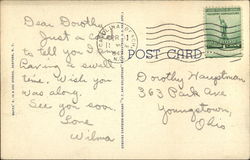 Dear Dorothy
Just a card
to tell you I am
having a swell
time. Wish you
was along.
See you soon
Love
Wilma
POST CARD
Dorothy Hauptman
363 Park Ave
Youngstown,
Ohio